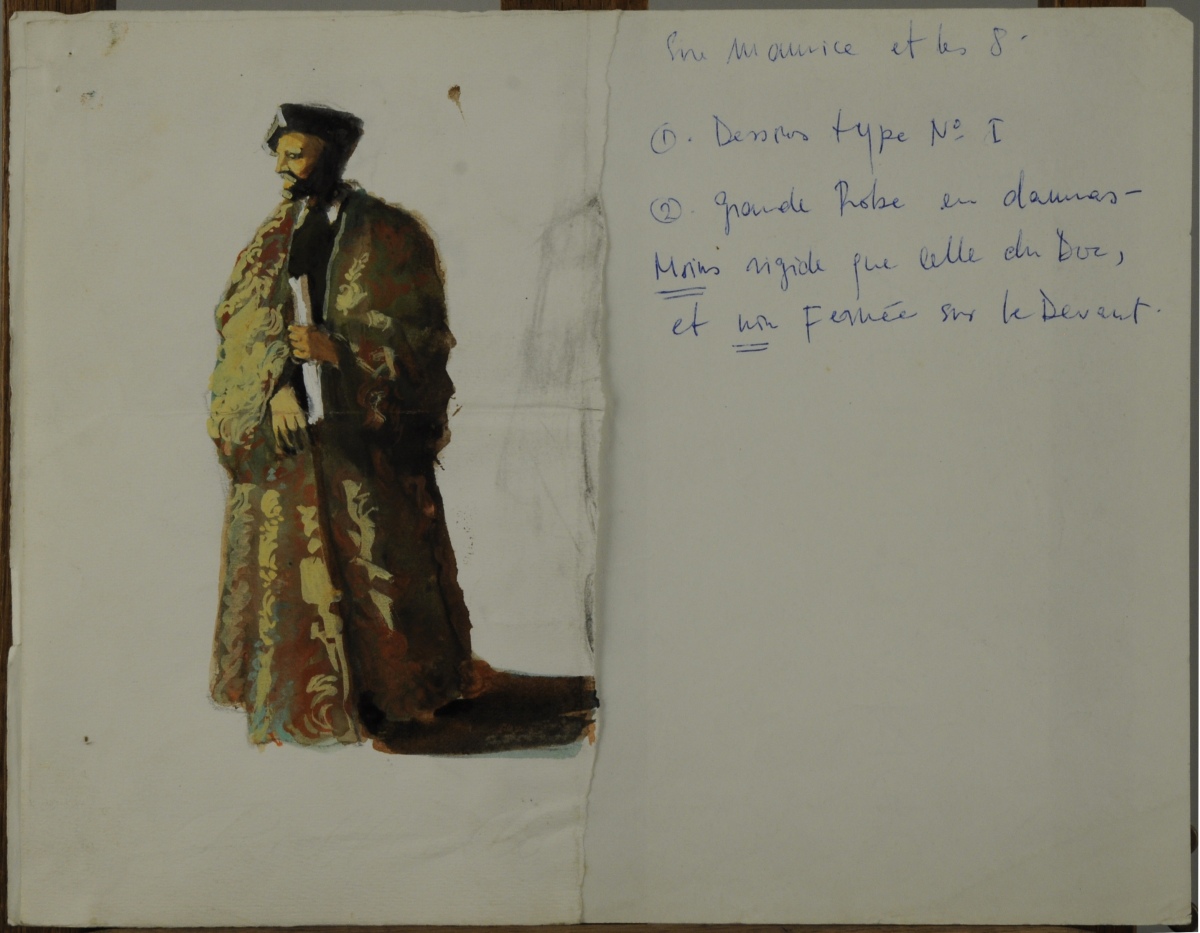 Sire Maurice et les 8.
①. Dessins type Nº I
②. Grande Robe en damas-
Moins rigide que celle du Doc,
et non Fermée sur le Devant.